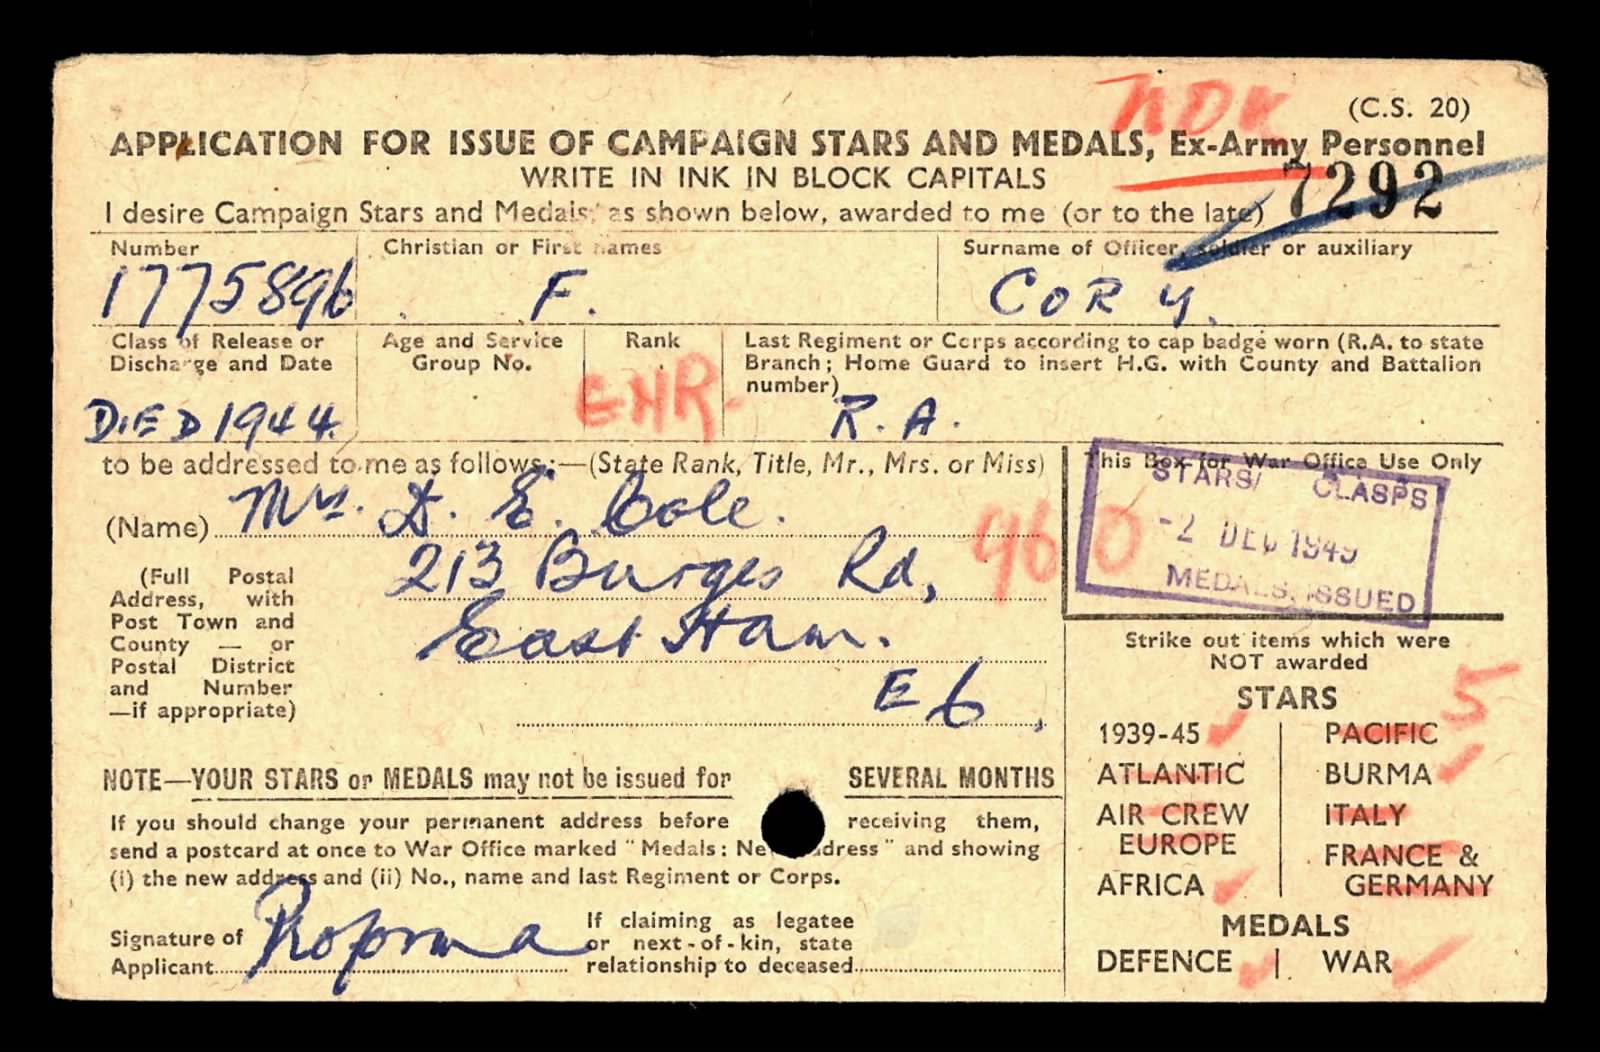 NOK
(C.S. 20)
APPLICATION FOR ISSUE OF CAMPAIGN STARS AND MEDALS, Ex-Army Personnel
WRITE IN INK IN BLOCK CAPITALS
7292
I desire Campaign Stars and Medals, as shown below, awarded to me (or to the late)
Number
Christian or First names
Surname of Officer, soldier or auxiliary
1775896
F.
CORY.
Class of Release or Discharge and Date
Age and Service Group No.
Rank
Last Regiment or Corps according to cap badge worn (R.A. to state
Branch; Home Guard to insert H.G. with County and Battalion
number)
DIED 1944.
GNR.
R.A.
to be addressed to me as follows:—(State Rank, Title, Mr., Mrs. or Miss)
(Name) Mrs. D. E. Cole.
(Full Postal
Address, with
Post Town and
County — or
Postal District
and Number
—if appropriate)
213 Burges Rd,
East Ham.
E6,
960
This Box for War Office Use Only
STARS/ CLASPS
-2 DEC 1949
MEDALS, ISSUED
Strike out items which were
NOT awarded
STARS
5
1939-45
PACIFIC
ATLANTIC
BURMA
AIR CREW EUROPE
ITALY
AFRICA
FRANCE & GERMANY
MEDALS
DEFENCE | WAR
NOTE—YOUR STARS or MEDALS may not be issued for SEVERAL MONTHS
If you should change your permanent address before receiving them,
send a postcard at once to War Office marked "Medals: New Address" and showing
(i) the new address and (ii) No., name and last Regiment or Corps.
Signature of
Applicant
Proforma
If claiming as legatee
or next-of-kin, state
relationship to deceased